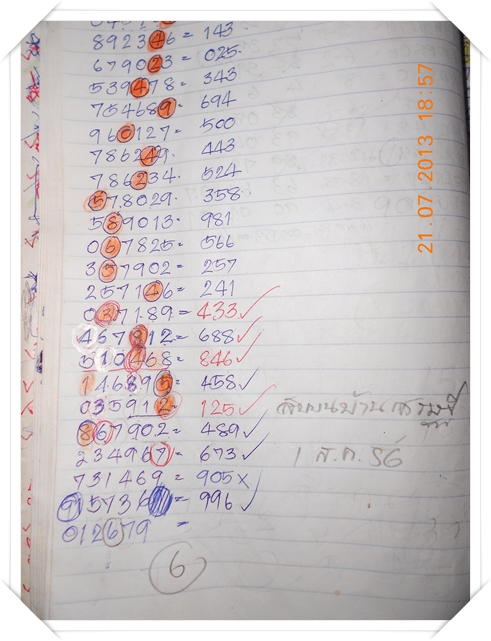 892346 = 143
679023 = 025
539478 = 343
754689 = 694
960127= 500
786249. 443
786234. 524
578029. 358
589013. 981
067825= 566
357902 = 257
257146 = 241
037189= 433✓
457812= 688✓
510468= 846✓
146895= 458✓
035912= 125✓
867902= 489✓
234967= 673✓
1 ส.ค. 56
731469 = 905×
= 996✓
012679 =
6
21.07.2013 18:57